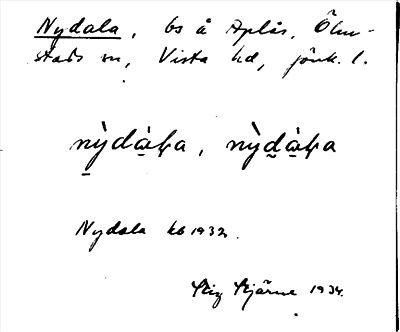 Nydala, bs å Aplås, Ölm-
stads sn, Vista hd, jönk. l.
nỳdàḷa, nỳdàḷa
Nydala kb 1932.
Stig Hjärne 1934.